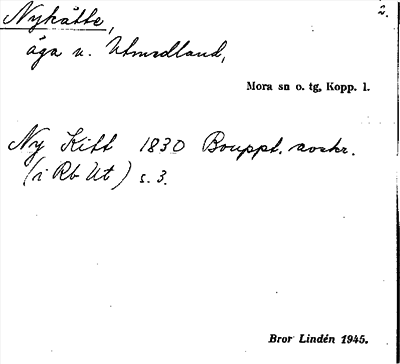 Nykätte, 2.
äga u. Utmedland,
Mora sn o. tg, Kopp. l.
Ny Kitt 1830 Bouppt. avskr.
(i Rb Ut) s. 3.
Bror Lindén 1945.